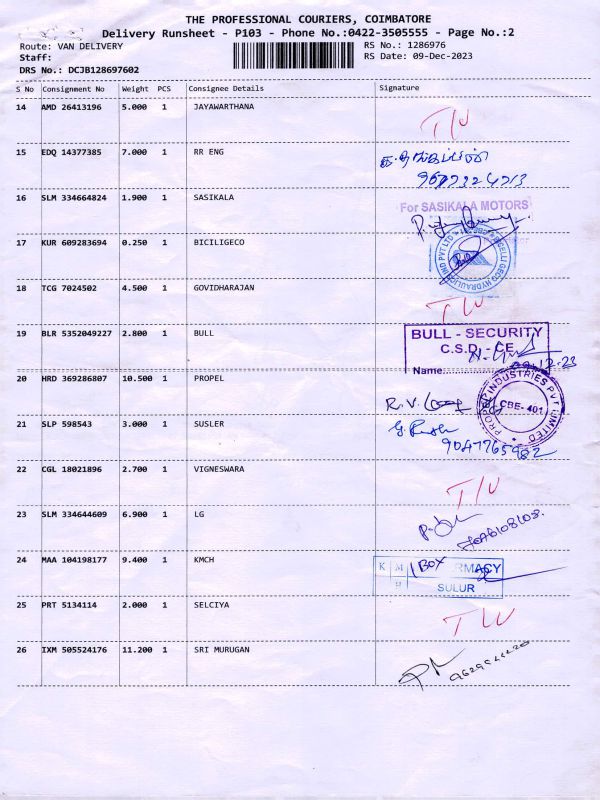 THE PROFESSIONAL COURIERS, COIMBATORE
Delivery Runsheet - P103 - Phone No.:0422-3505555 - Page No.:2
Route: VAN DELIVERY RS No.: 1286976
Staff: RS Date: 09-Dec-2023
DRS No.: DCJB128697602
S No Consignment No Weight PCS Consignee Details Signature
14 AMD 26413196 5.000 1 JAYAWARTHANA
15 EDQ 14377385 7.000 1 RR ENG
16 SLM 334664824 1.900 1 SASIKALA
For SASIKALA MOTORS
17 KUR 609283694 0.250 1 BICILIGECO
18 TCG 7024502 4.500 1 GOVIDHARAJAN
19 BLR 5352049227 2.800 1 BULL
BULL - SECURITY
C.S.D - CE
Name
20 HRD 369286807 10.500 1 PROPEL
PROPEL INDUSTRIES PVT LIMITED
CBE- 401
21 SLP 598543 3.000 1 SUSLER
9047765982
22 CGL 18021896 2.700 1 VIGNESWARA
23 SLM 334644609 6.900 1 LG
24 MAA 104198177 9.400 1 KMCH
K M 1 BOX RMACY
H SULUR
25 PRT 5134114 2.000 1 SELCIYA
26 IXM 505524176 11.200 1 SRI MURUGAN